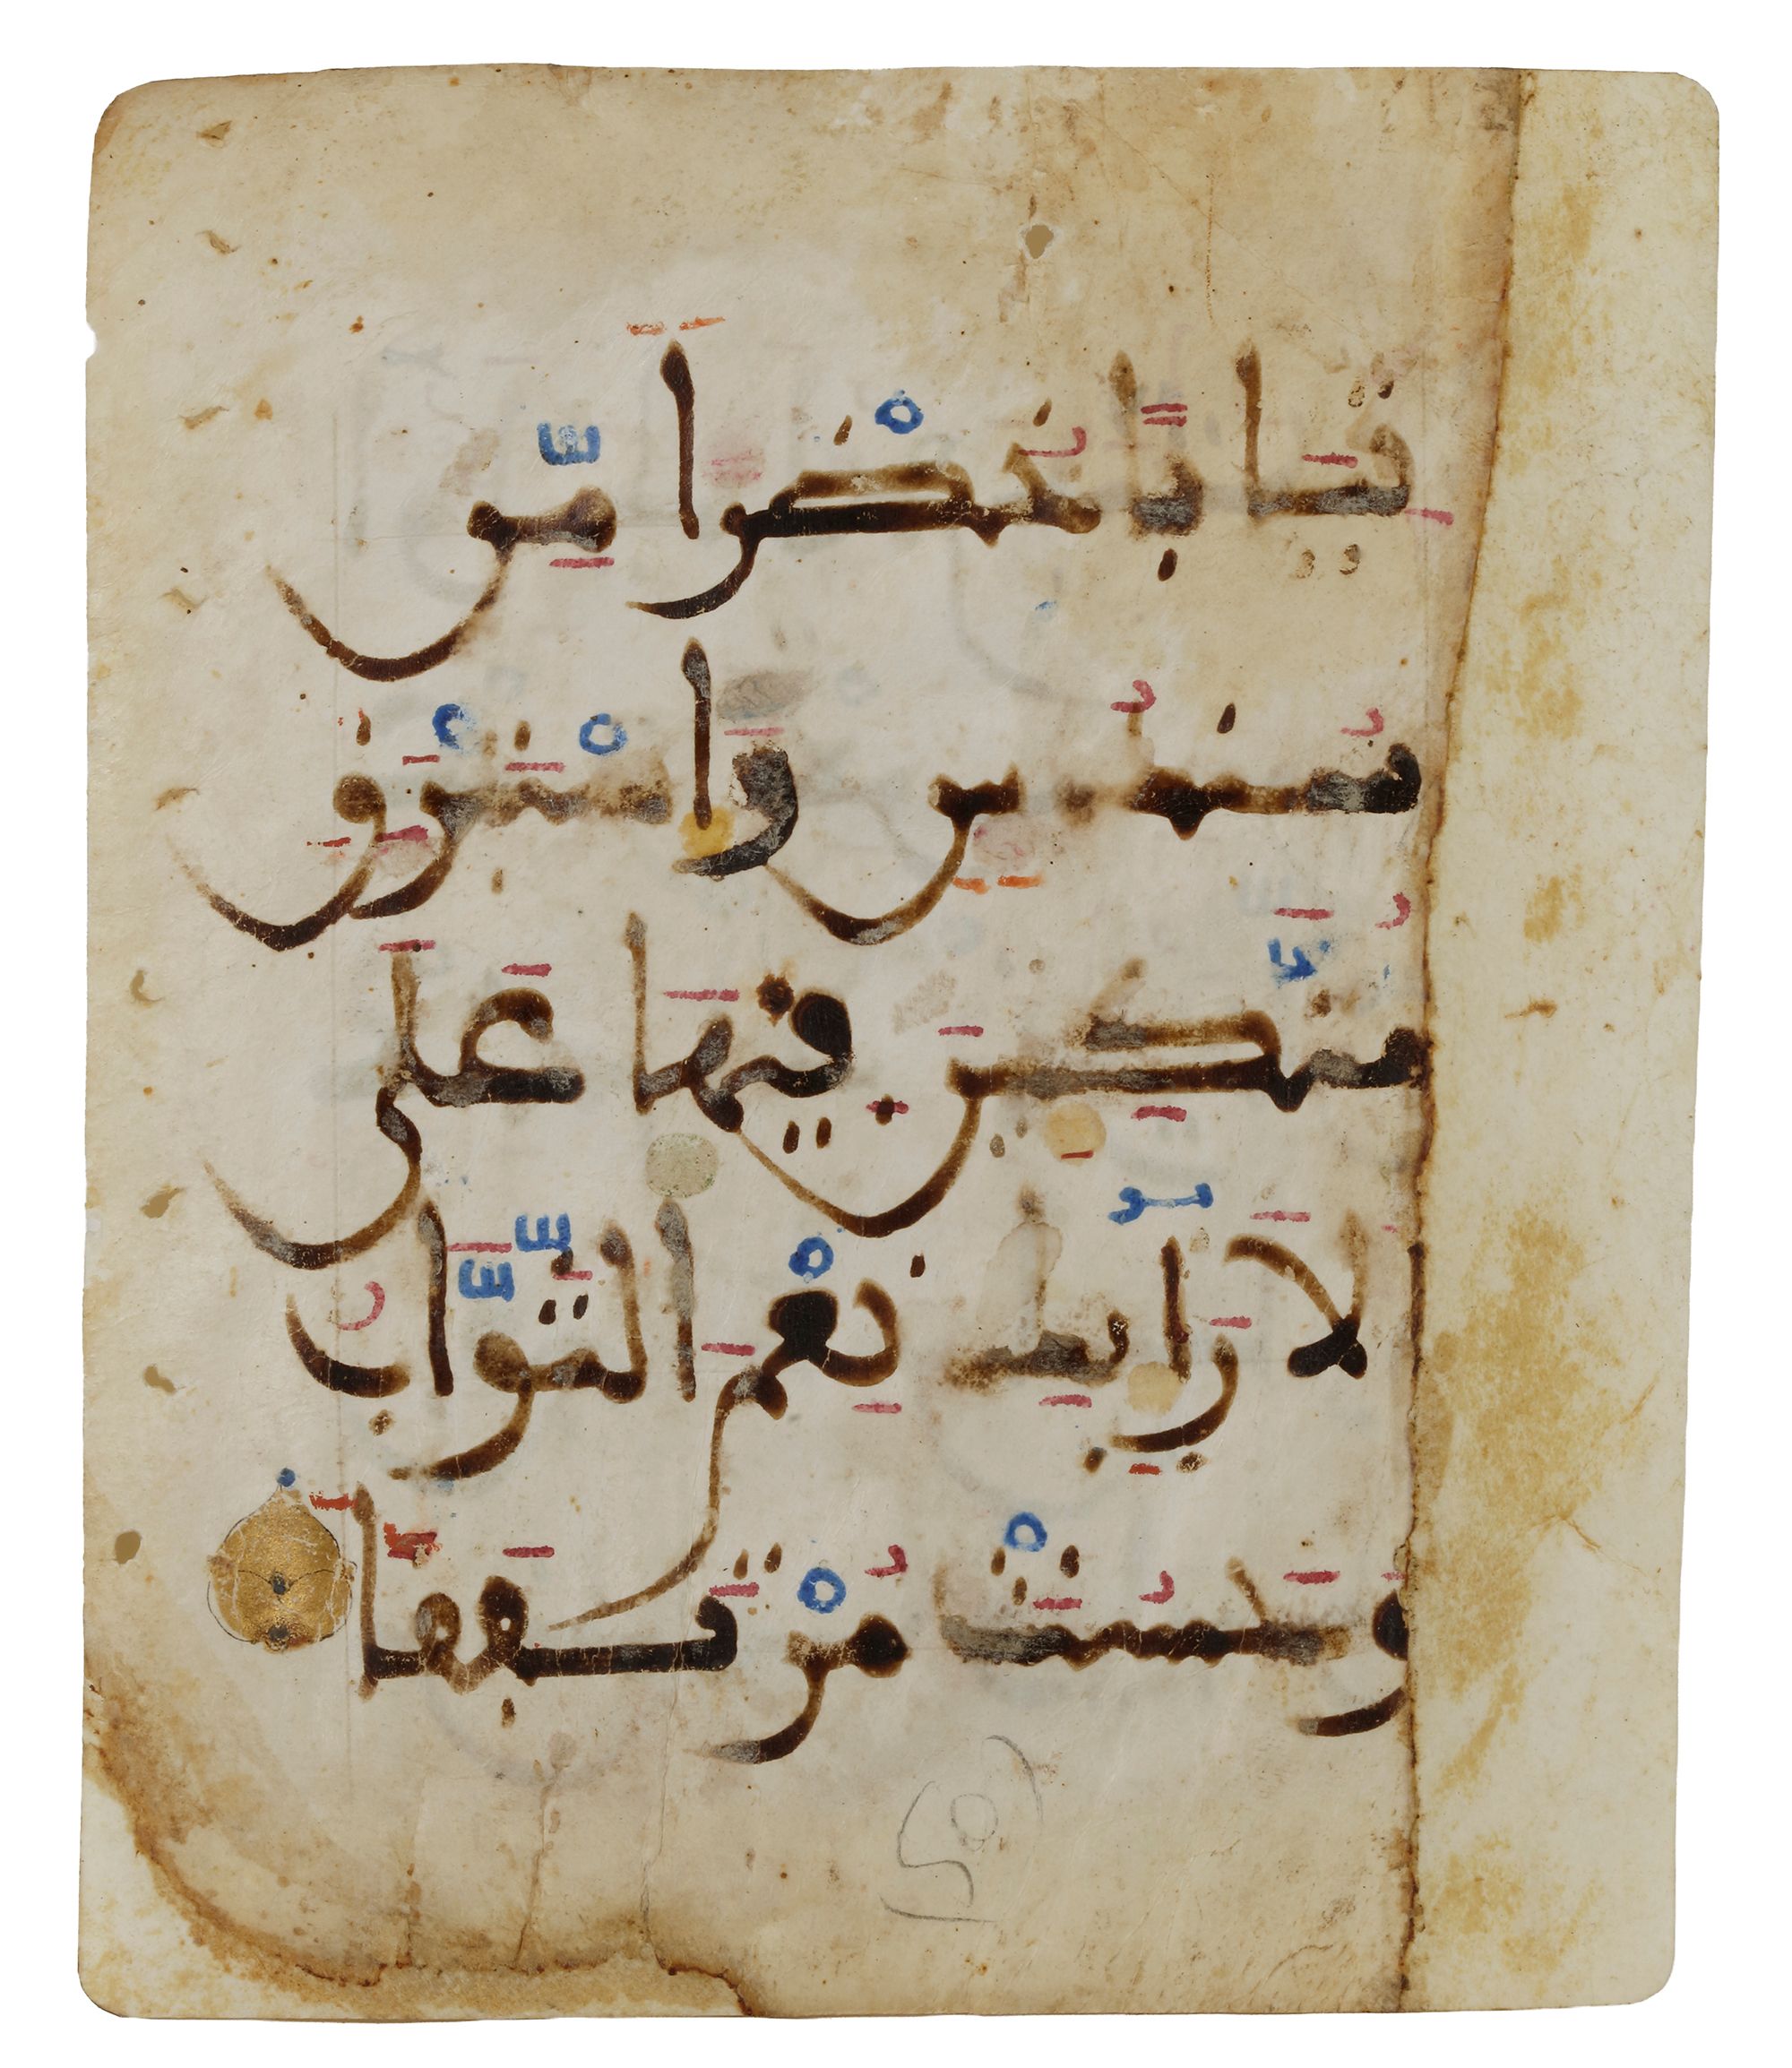 ثِيَابًا خُضْرًا مِّن
سُندُسٍ وَإسْتَبْرَقٍ
مُتَّكِئِينَ فِيهَا عَلَى
الَارَآئِكِ نِعْمَ الثَّوَابُ
وَحَسُنَتْ مُرْتَفَقًا